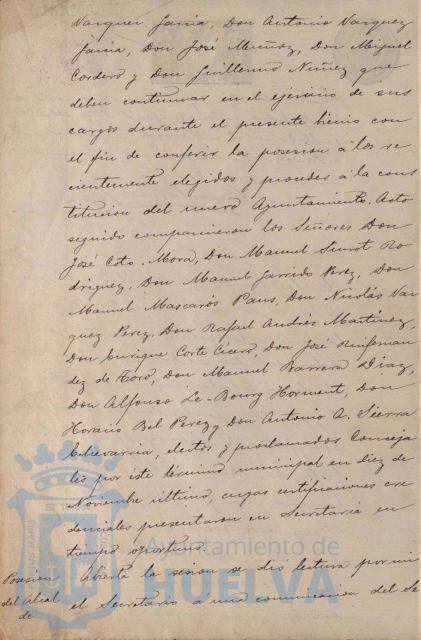 Vazquez Garcia, Don Antonio Vazquez
Garcia, Don José Muñoz, Don Miguel
Cordero y Don Guillermo Nuñez que
deben continuar en el ejercicio de sus
cargos durante el presente bienio con
el fin de conferir la posesion á los re
cientemente elegidos y proceder á la cons
titucion del nuevo Ayuntamiento. Acto
seguido comparecieron los Señores Don
José Coto Mora, Don Manuel Sunot Ro
driguez, Don Manuel Garrido Perez, Don
Manuel Mascarós Pans, Don Nicolás Vaz
quez Perez, Don Rafael Andrés Martinez,
Don Enrique Corte Cicero, Don José Ruifernan
dez de Toro, Don Manuel Barrera Diaz,
Don Alfonso Le-Bourg Horment, Don
Horacio Bel Perez y Don Antonio A. Sierra
Echevarria, electos y proclamados Conceja
les por este término municipal en diez de
Noviembre último, cuyas certificaciones cre
denciales presentaron en Secretaria en
tiempo oportuno.
Posesion
del Alcal
de
Abierta la sesion se dió lectura por mi
el Secretario a una comunicacion del Se
Ayuntamiento de
HUELVA